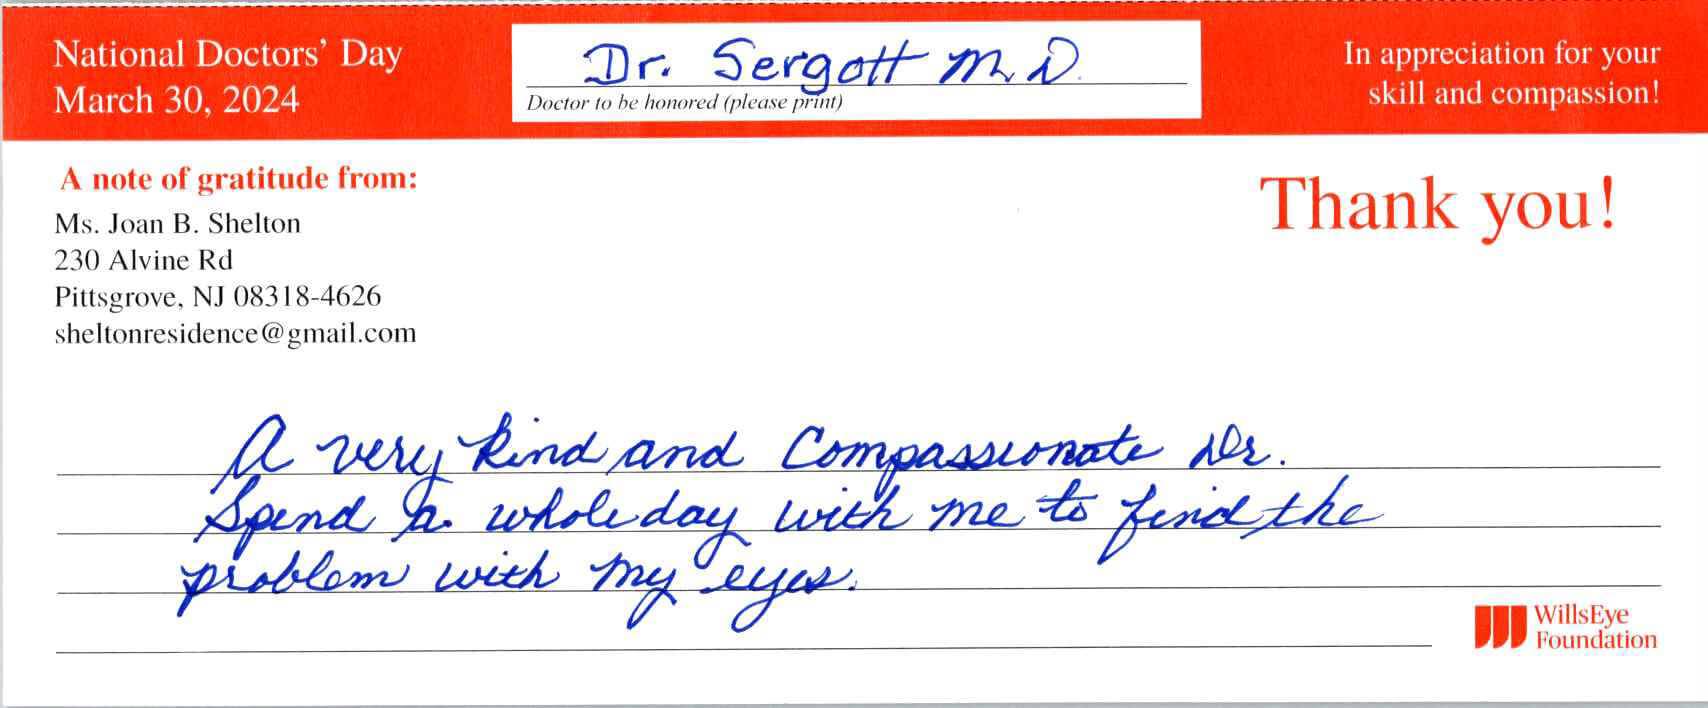 National Doctors' Day
March 30, 2024
Dr. Sergott M.D.
Doctor to be honored (please print)
In appreciation for your
skill and compassion!
A note of gratitude from:
Ms. Joan B. Shelton
230 Alvine Rd
Pittsgrove, NJ 08318-4626
sheltonresidence@gmail.com
Thank you!
A very kind and Compassionate Dr.
Spend a whole day with me to find the
problem with my eyes.
WillsEye
Foundation